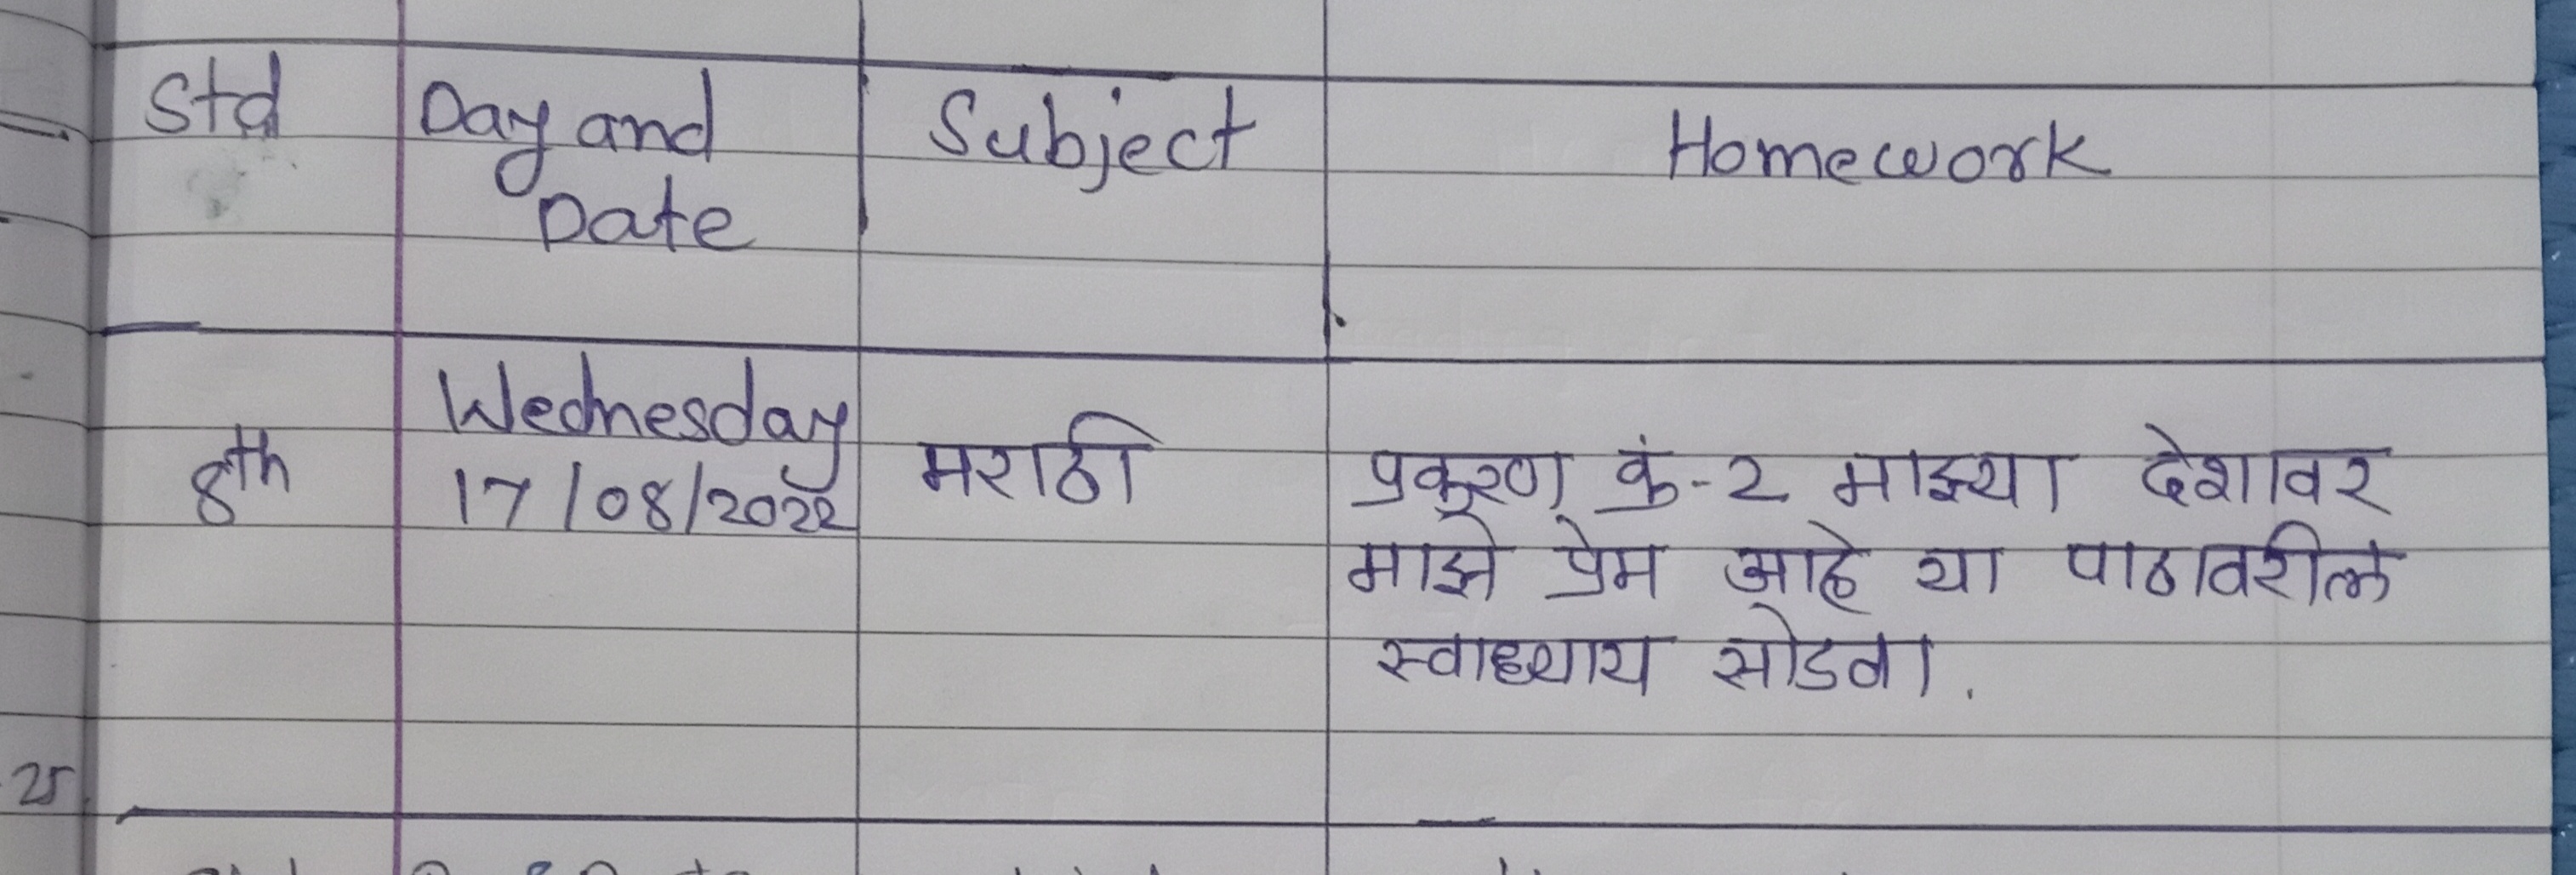 Std Day and Subject Homework
Date
Wednesday
8th 17/08/2022 मराठी प्रकरण क्रं-2 माझ्या देशावर
माझे प्रेम आहे या पाठावरील
स्वाध्याय सोडवा.
25